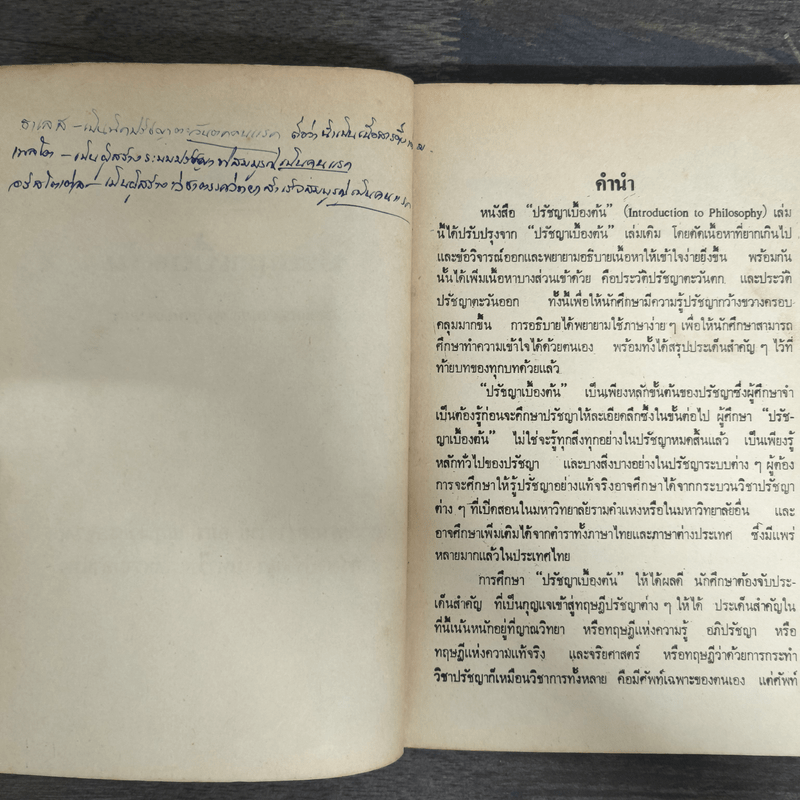 ธาเลส - เป็นนักปรัชญาตะวันตกคนแรก ถือว่าน้ำเป็นเนื้อสาร
เพลโต - เป็นผู้สร้างระบบปรัชญาที่สมบูรณ์เป็นคนแรก
อริสโตเติล - เป็นผู้สร้างวิชาตรรกวิทยาสำเร็จสมบูรณ์เป็นคนแรก
คำนำ
หนังสือ “ปรัชญาเบื้องต้น” (Introduction to Philosophy) เล่ม
นี้ได้ปรับปรุงจาก “ปรัชญาเบื้องต้น” เล่มเดิม โดยตัดเนื้อหาที่ยากเกินไป
และข้อวิจารณ์ออกและพยายามอธิบายเนื้อหาให้เข้าใจง่ายยิ่งขึ้น พร้อมกัน
นั้นได้เพิ่มเนื้อหาบางส่วนเข้าด้วย คือประวัติปรัชญาตะวันตก และประวัติ
ปรัชญาตะวันออก ทั้งนี้เพื่อให้นักศึกษามีความรู้ปรัชญากว้างขวางครอบ
คลุมมากขึ้น การอธิบายได้พยายามใช้ภาษาง่าย ๆ เพื่อให้นักศึกษาสามารถ
ศึกษาทำความเข้าใจได้ด้วยตนเอง พร้อมทั้งได้สรุปประเด็นสำคัญ ๆ ไว้ที่
ท้ายบทของทุกบทด้วยแล้ว
“ปรัชญาเบื้องต้น” เป็นเพียงหลักขั้นต้นของปรัชญาซึ่งผู้ศึกษาจำ
เป็นต้องรู้ก่อนจะศึกษาปรัชญาให้ละเอียดลึกซึ้งในขั้นต่อไป ผู้ศึกษา “ปรัช-
ญาเบื้องต้น” ไม่ใช่จะรู้ทุกสิ่งทุกอย่างในปรัชญาหมดสิ้นแล้ว เป็นเพียงรู้
หลักทั่วไปของปรัชญา และบางสิ่งบางอย่างในปรัชญาระบบต่าง ๆ ผู้ต้อง
การจะศึกษาให้รู้ปรัชญาอย่างแท้จริงอาจศึกษาได้จากกระบวนวิชาปรัชญา
ต่าง ๆ ที่เปิดสอนในมหาวิทยาลัยรามคำแหงหรือในมหาวิทยาลัยอื่น และ
อาจศึกษาเพิ่มเติมได้จากตำราทั้งภาษาไทยและภาษาต่างประเทศ ซึ่งมีแพร่
หลายมากแล้วในประเทศไทย
การศึกษา “ปรัชญาเบื้องต้น” ให้ได้ผลดี นักศึกษาต้องจับประ-
เด็นสำคัญ ที่เป็นกุญแจเข้าสู่ทฤษฎีปรัชญาต่าง ๆ ให้ได้ ประเด็นสำคัญใน
ที่นี้เน้นหนักอยู่ที่ญาณวิทยา หรือทฤษฎีแห่งความรู้ อภิปรัชญา หรือ
ทฤษฎีแห่งความแท้จริง และจริยศาสตร์ หรือทฤษฎีว่าด้วยการกระทำ
วิชาปรัชญาก็เหมือนวิชาการทั้งหลาย คือมีศัพท์เฉพาะของตนเอง แต่ศัพท์